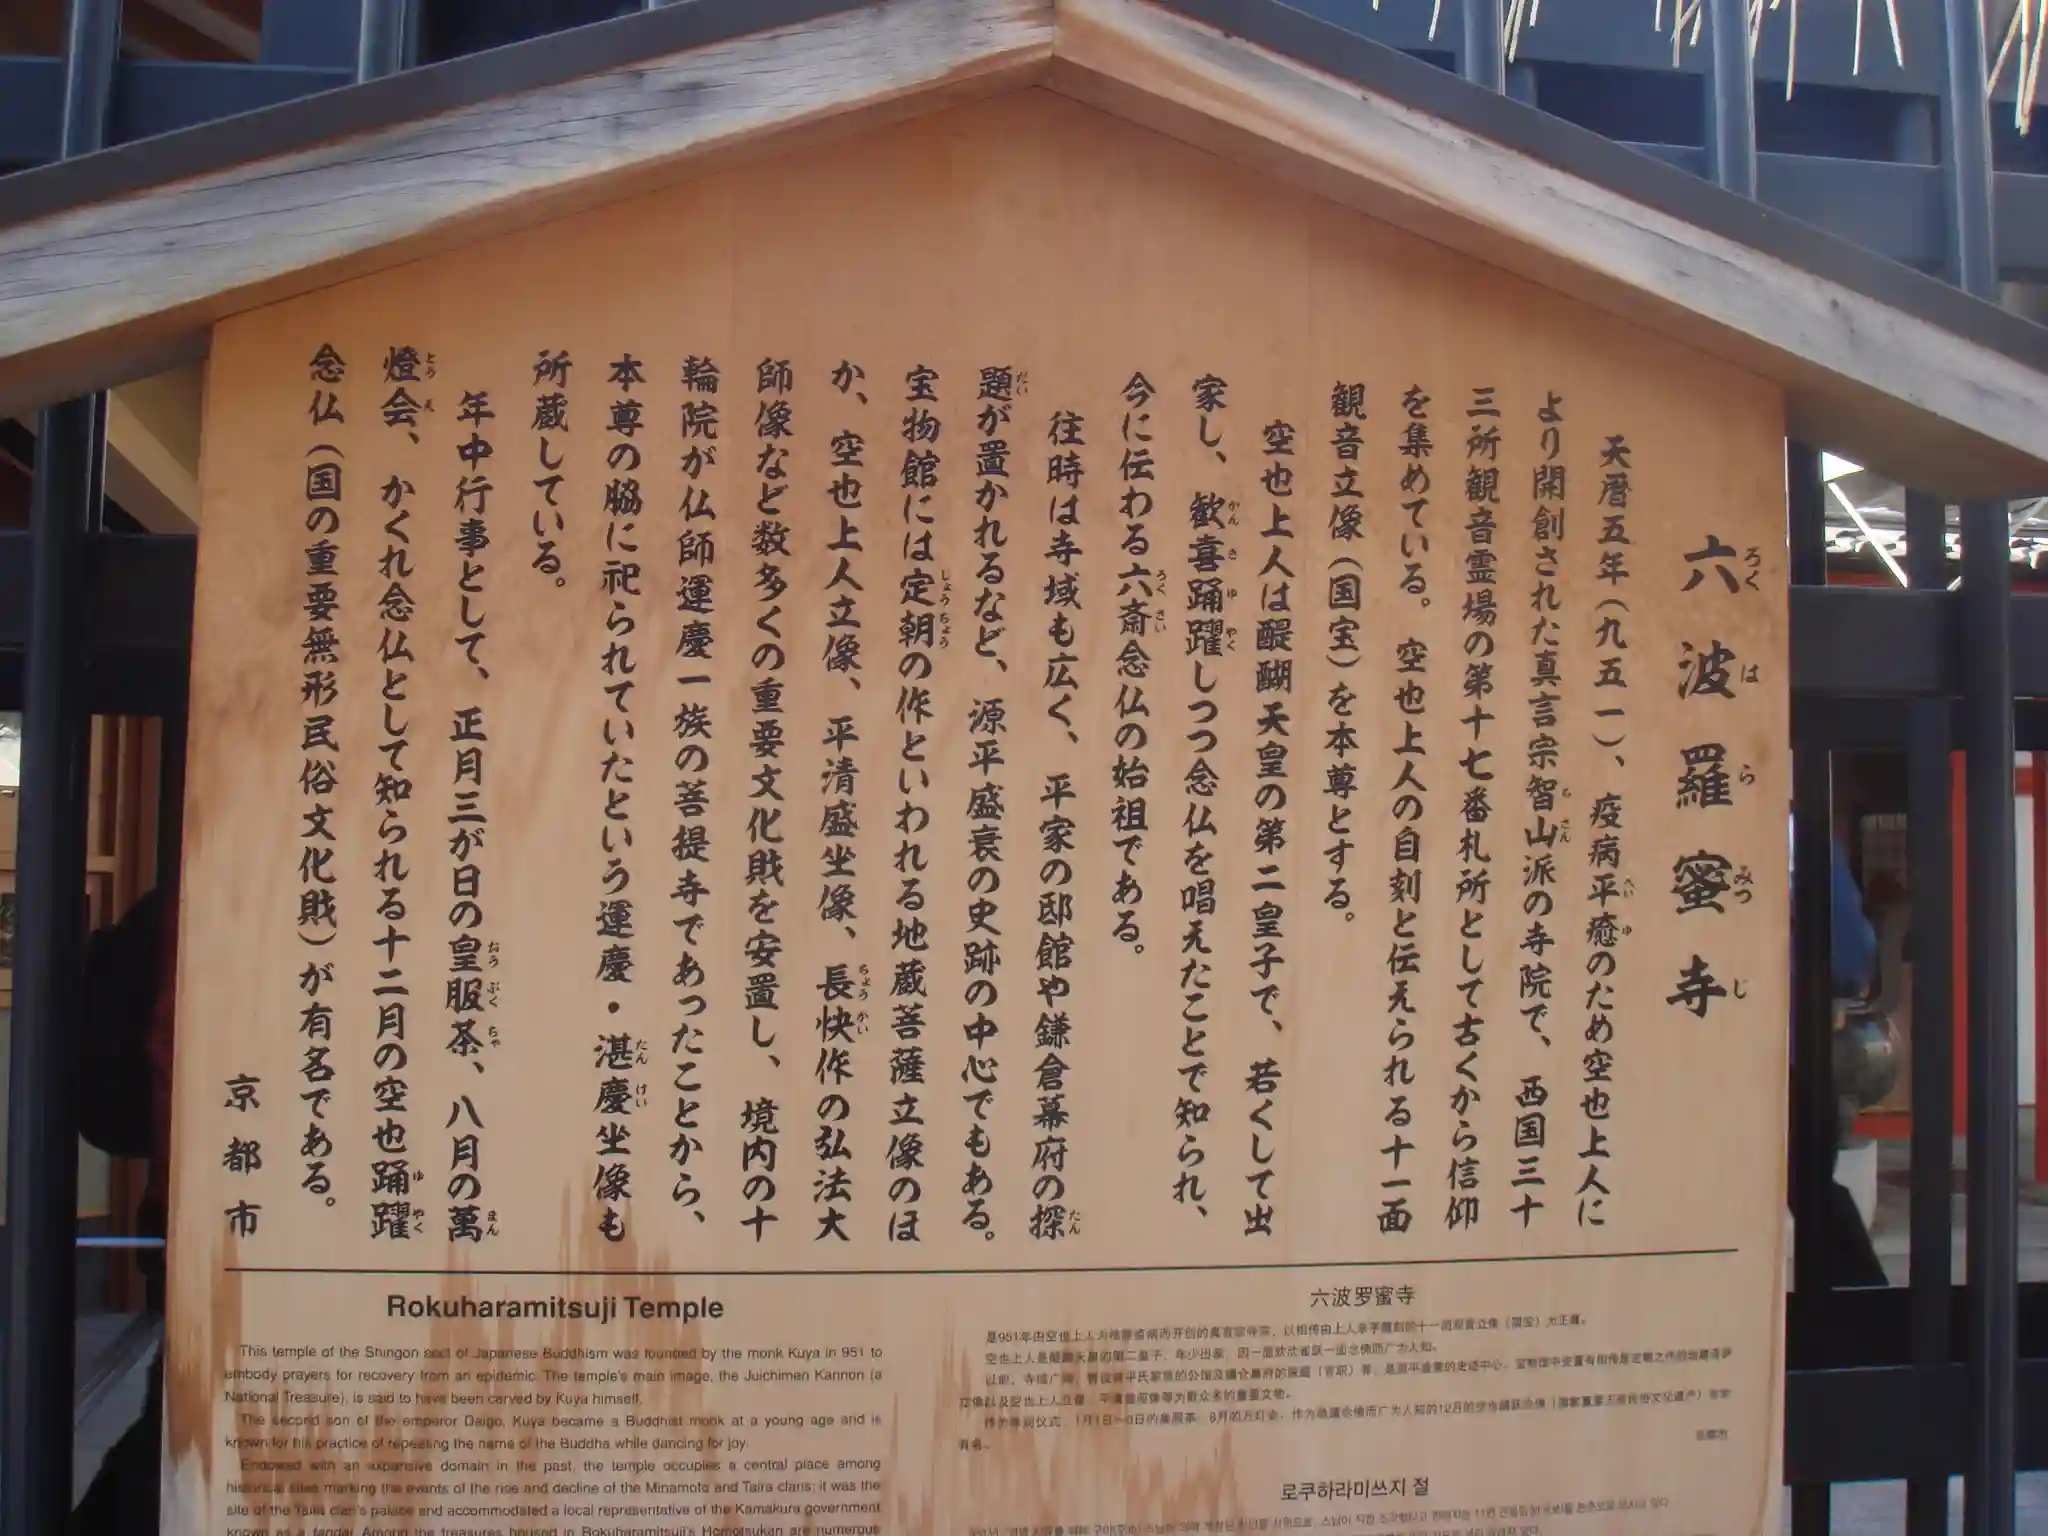 六波羅蜜寺
天暦五年(九五一)、疫病平癒のため空也上人に
より開創された真言宗智山派の寺院で、西国三十
三所観音霊場の第十七番札所として古くから信仰
を集めている。空也上人の自刻と伝えられる十一面
観音立像(国宝)を本尊とする。
空也上人は醍醐天皇の第二皇子で、若くして出
家し、歓喜踊躍しつつ念仏を唱えたことで知られ、
今に伝わる六斎念仏の始祖である。
往時は寺域も広く、平家の邸館や鎌倉幕府の探
題が置かれるなど、源平盛衰の史跡の中心でもある。
宝物館には定朝の作といわれる地蔵菩薩立像のほ
か、空也上人立像、平清盛坐像、長快作の弘法大
師像など数多くの重要文化財を安置し、境内の十
輪院が仏師運慶一族の菩提寺であったことから、
本尊の脇に祀られていたという運慶・湛慶坐像も
所蔵している。
年中行事として、正月三が日の皇服茶、八月の萬
燈会、かくれ念仏として知られる十二月の空也踊躍
念仏(国の重要無形民俗文化財)が有名である。
京都市
Rokuharamitsuji Temple
This temple of the Shingon sect of Japanese Buddhism was founded by the monk Kuya in 951 to
embody prayers for recovery from an epidemic. The temple's main image, the Juichimen Kannon (a
National Treasure), is said to have been carved by Kuya himself.
The second son of the emperor Daigo, Kuya became a Buddhist monk at a young age and is
known for his practice of repeating the name of the Buddha while dancing for joy.
Endowed with an expansive domain in the past, the temple occupies a central place among
historical sites marking the events of the rise and decline of the Minamoto and Taira clans; it was the
site of the Taira clan's palace and accommodated a local representative of the Kamakura government
known as a tandai. Among the treasures housed in Rokuharamitsuji's Homotsukan are numerous
六波罗蜜寺
是951年由空也上人为祛除疫病而开创的真言宗寺院,以相传由上人亲手雕刻的十一面观音立像(国宝)为正尊。
空也上人是醍醐天皇的第二皇子,年少出家,因一面欢欣雀跃一面念佛而广为人知。
有名。
京都市
로쿠하라미쓰지 절